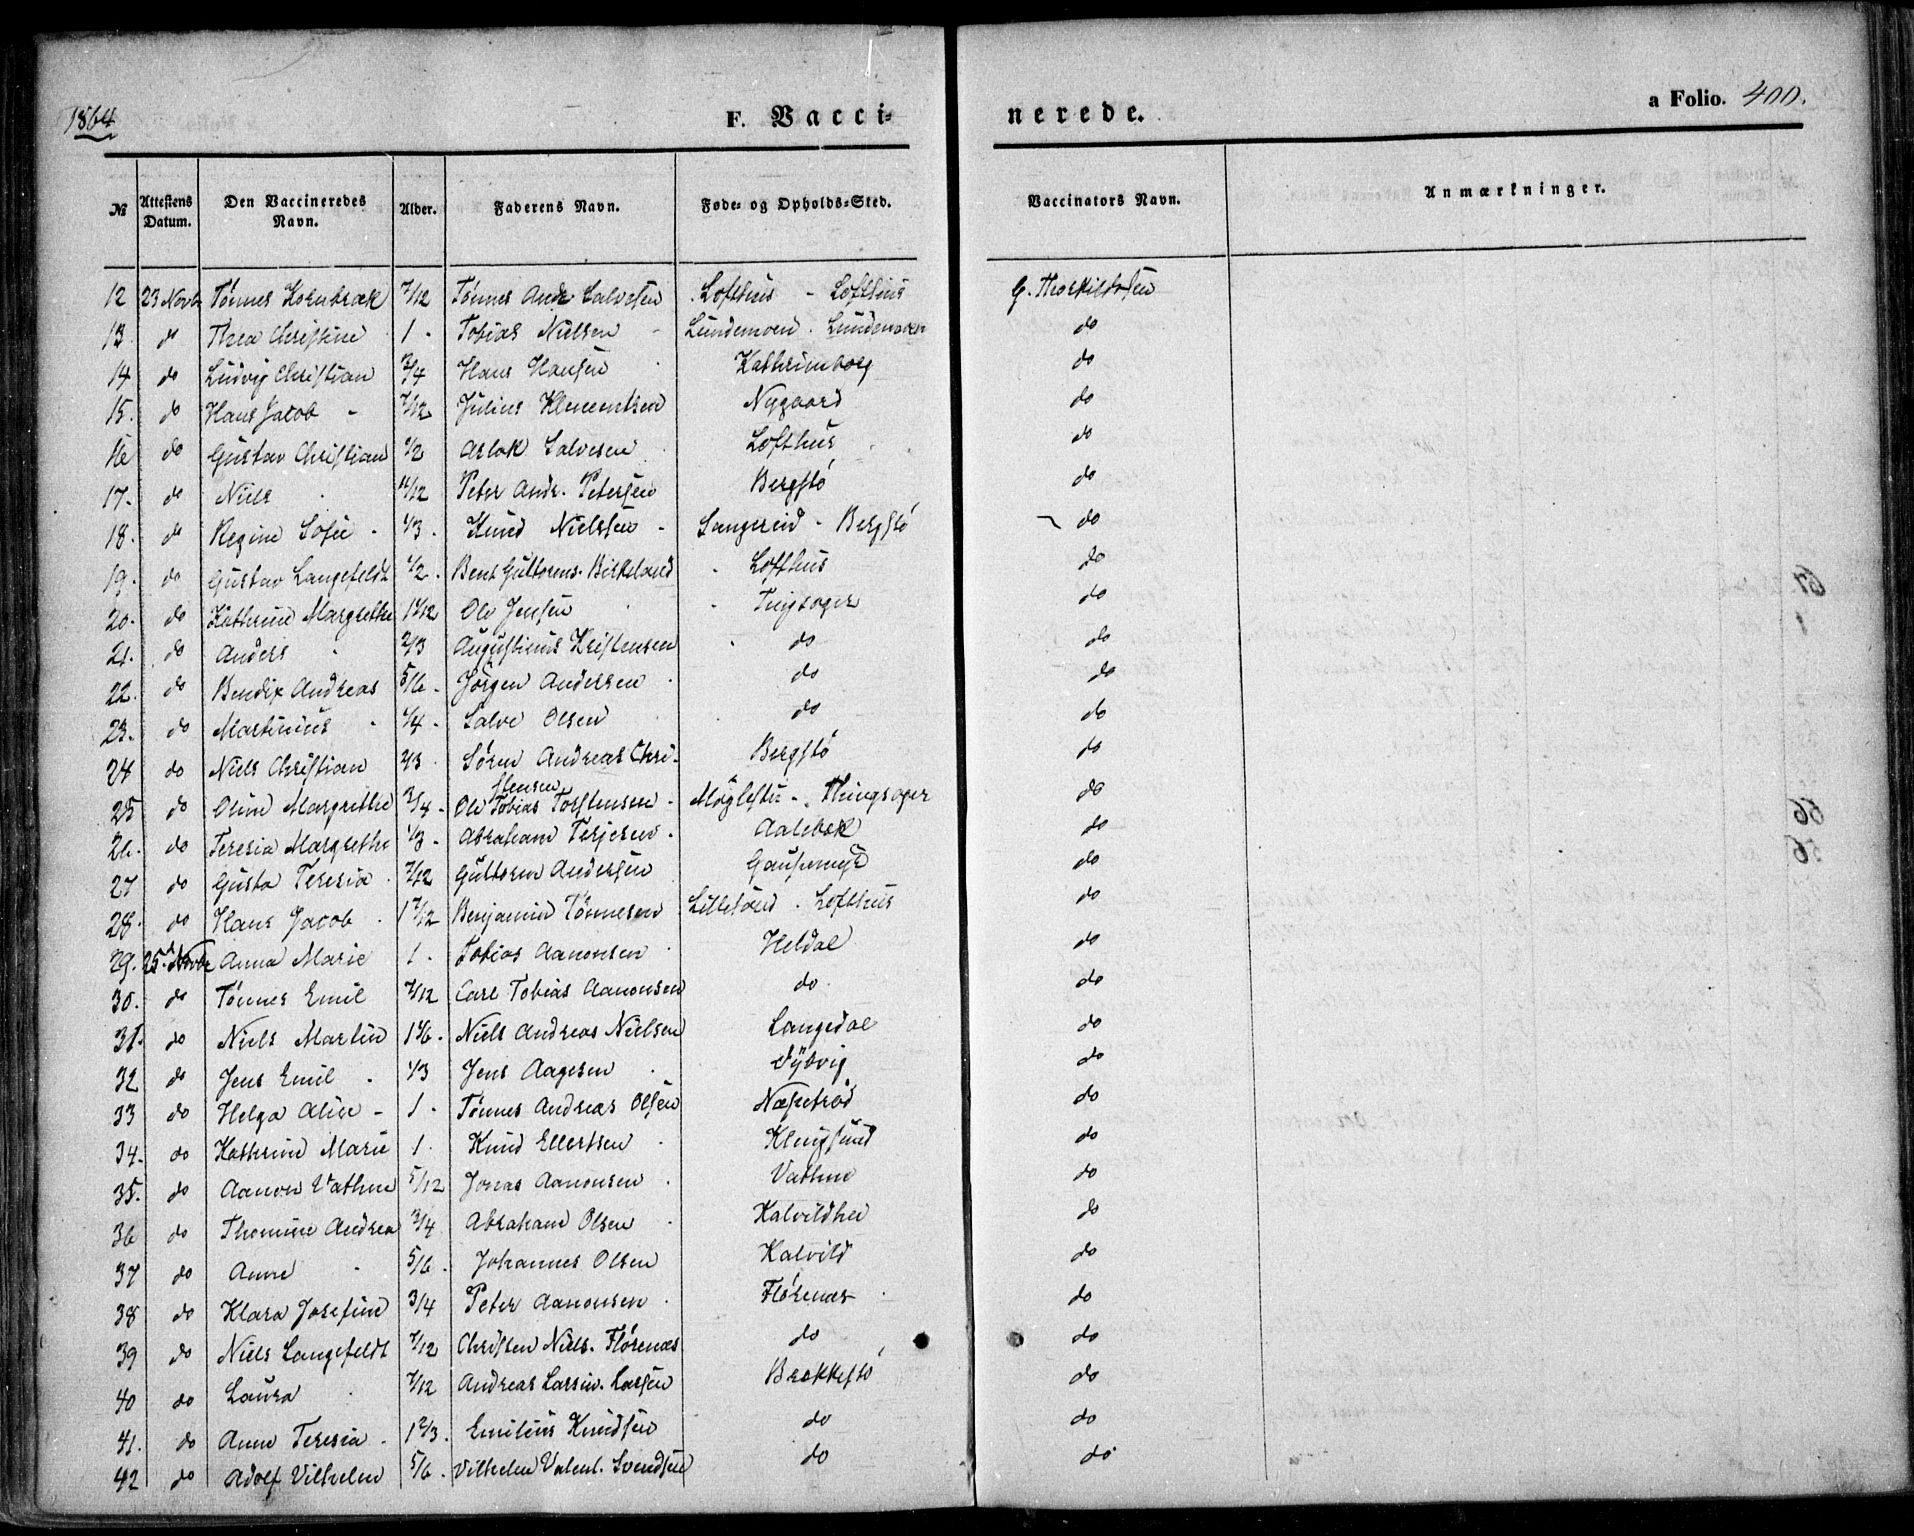 1864
F. Vaccinerede.
a Folio. 400.
№ Attestens Datum. Den Vaccineredes Navn. Alder. Faderens Navn. Føde- og Opholds-Sted. Vaccinators Navn. Anmærkninger.
12 23 Novb Tønnes Kornbræk 7/12 Tønnes Andr Salvesen Lofthus - Lofthus G. Thorkildsen
13. do Thea Christine 1 - Tobias Nielsen - Lundemoen - Lundemoen do
14 do Ludvig Christian 3/4 Hans Hansen Kathrinborg do
15. do Hans Jacob - 7/12 Julius Klementsen Nygaard do
16 do Gustav Christian 1/2 Aslak Salvesen Lofthus do
17. do Niels 11/12 Peter Andr. Petersen Bergstö do
18. do Regine Sofie - 1/3. Knud Nielssen - Sangereid - Bergstö do
19. do Gustav Langefeldt 1/2. Bent Guttorms. Birkeland Lofthus do
20. do Kathrine Margrethe Ole Jensen Tingsager do
21. do Anders 2/3 Augustinus Kristensen do do
22. do Bendix Andreas 5/6. Jörgen Andersen do do
23. do Martinius 1/4. Salve Olsen do do
24 do Niels Christian 2/3. Sören Andreas Christensen Bergstö do
25 do Oline Margrethe 3/4. Ole Tobias Torstensen - Møglestu - Thingsager do
26. do Teresia Margrethe 1/3. Abraham Terjesen. Aalebæk do
27 do Gusta Teresia 7/12 Guttorm Andersen Gaupemyr do
28. do Hans Jacob 1 7/12 Benjamin Tönnesen Lillesand - Lofthus do
29. 25 Novbr Anna Marie 1. Tobias Aanonsen Heldal do
30. do Tönnes Emil 7/12 Carl Tobias Aanonsen do. do
31. do Niels Martin 1 1/6. Niels Andreas Nielsen Langedal do
32 do Jens Emil 1/3 Jens Aagesen Dybvig do
33 do Helga Aline - 1. Tönnes Andreas Olsen Næpetrød do
34. do Kathrine Marie 1. Knud Ellertsen Klingsund do
35. do Aanon Vathne 5/12 Jonas Aanonsen Vathne do
36 do Thomine Andrea 3/4 Abraham Olsen Kalvildhei do
37 do Anne 5/6. Johannes Olsen Kalvild do
38 do Klara Josefine 3/4 Peter Aanonsen Flörenæs do
39 do Niels Langefeldt 7/12 Christen Niels. Flörenæs do do
40 do Laura 7/12 Andreas Larsin. Larsen Brækkestö do
41. do Anne Teresia 1 2/3. Emilius Knudsen do do
42 do Adolf Vilhelm 5/6. Vilhelm Valent. Svendsen do do